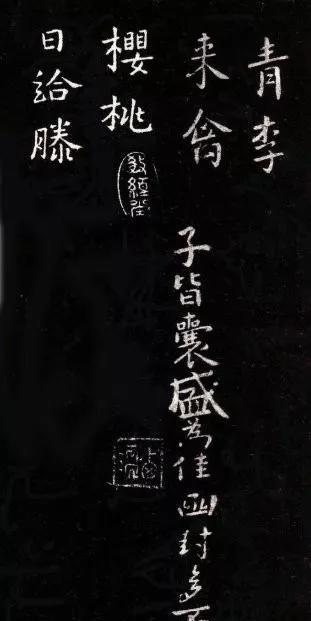 青李
来禽
櫻桃
日給滕
子皆囊盛為佳函封多不